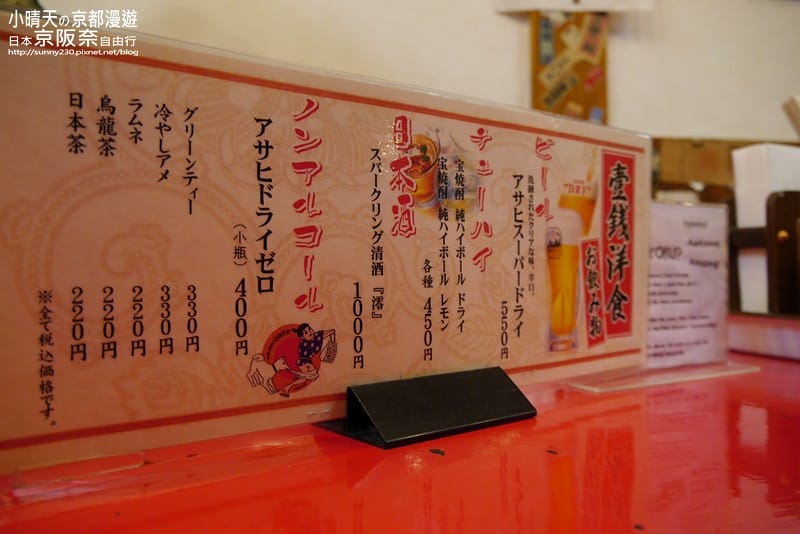 小晴天の京都漫遊
日本京阪奈自由行
http://sunny230.pixnet.net/blog
壹銭洋食
お飲み物
ビール
洗練されたクリアな味、辛口。
アサヒスーパードライ 550円
チューハイ
宝焼酎 純ハイボール ドライ
宝焼酎 純ハイボール レモン
各種 450円
日本酒
スパークリング清酒『澪』 1000円
ノンアルコール
アサヒドライゼロ (小瓶) 400円
グリーンティー 330円
冷やしアメ 330円
ラムネ 220円
烏龍茶 220円
日本茶 220円
※全て税込価格です。
"DRY"